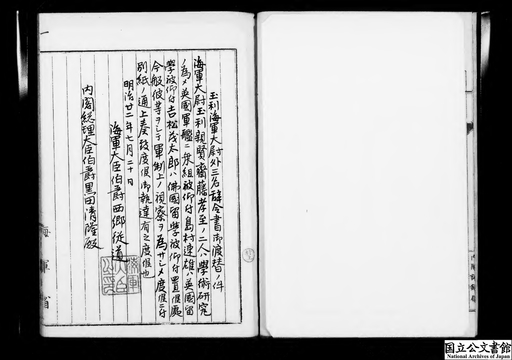 玉利海軍大尉外三名辞令書御渡替ノ件
海軍大尉玉利親賢齋藤孝至ノ二人ハ學術研究
ノ為メ英國軍艦ニ乗組被仰付島村速雄ハ英國留
學被仰付吉松茂太郎ハ佛國留學被仰付置候處
今般彼等ヲシテ軍制上ノ視察ヲ為サシメ度候ニ付
別紙ノ通上奏致度候御執達有之度候也
明治廿二年七月二十日
海軍大臣伯爵西郷従道
内閣総理大臣伯爵黒田清隆殿
海軍省
国立公文書館
National Archives of Japan